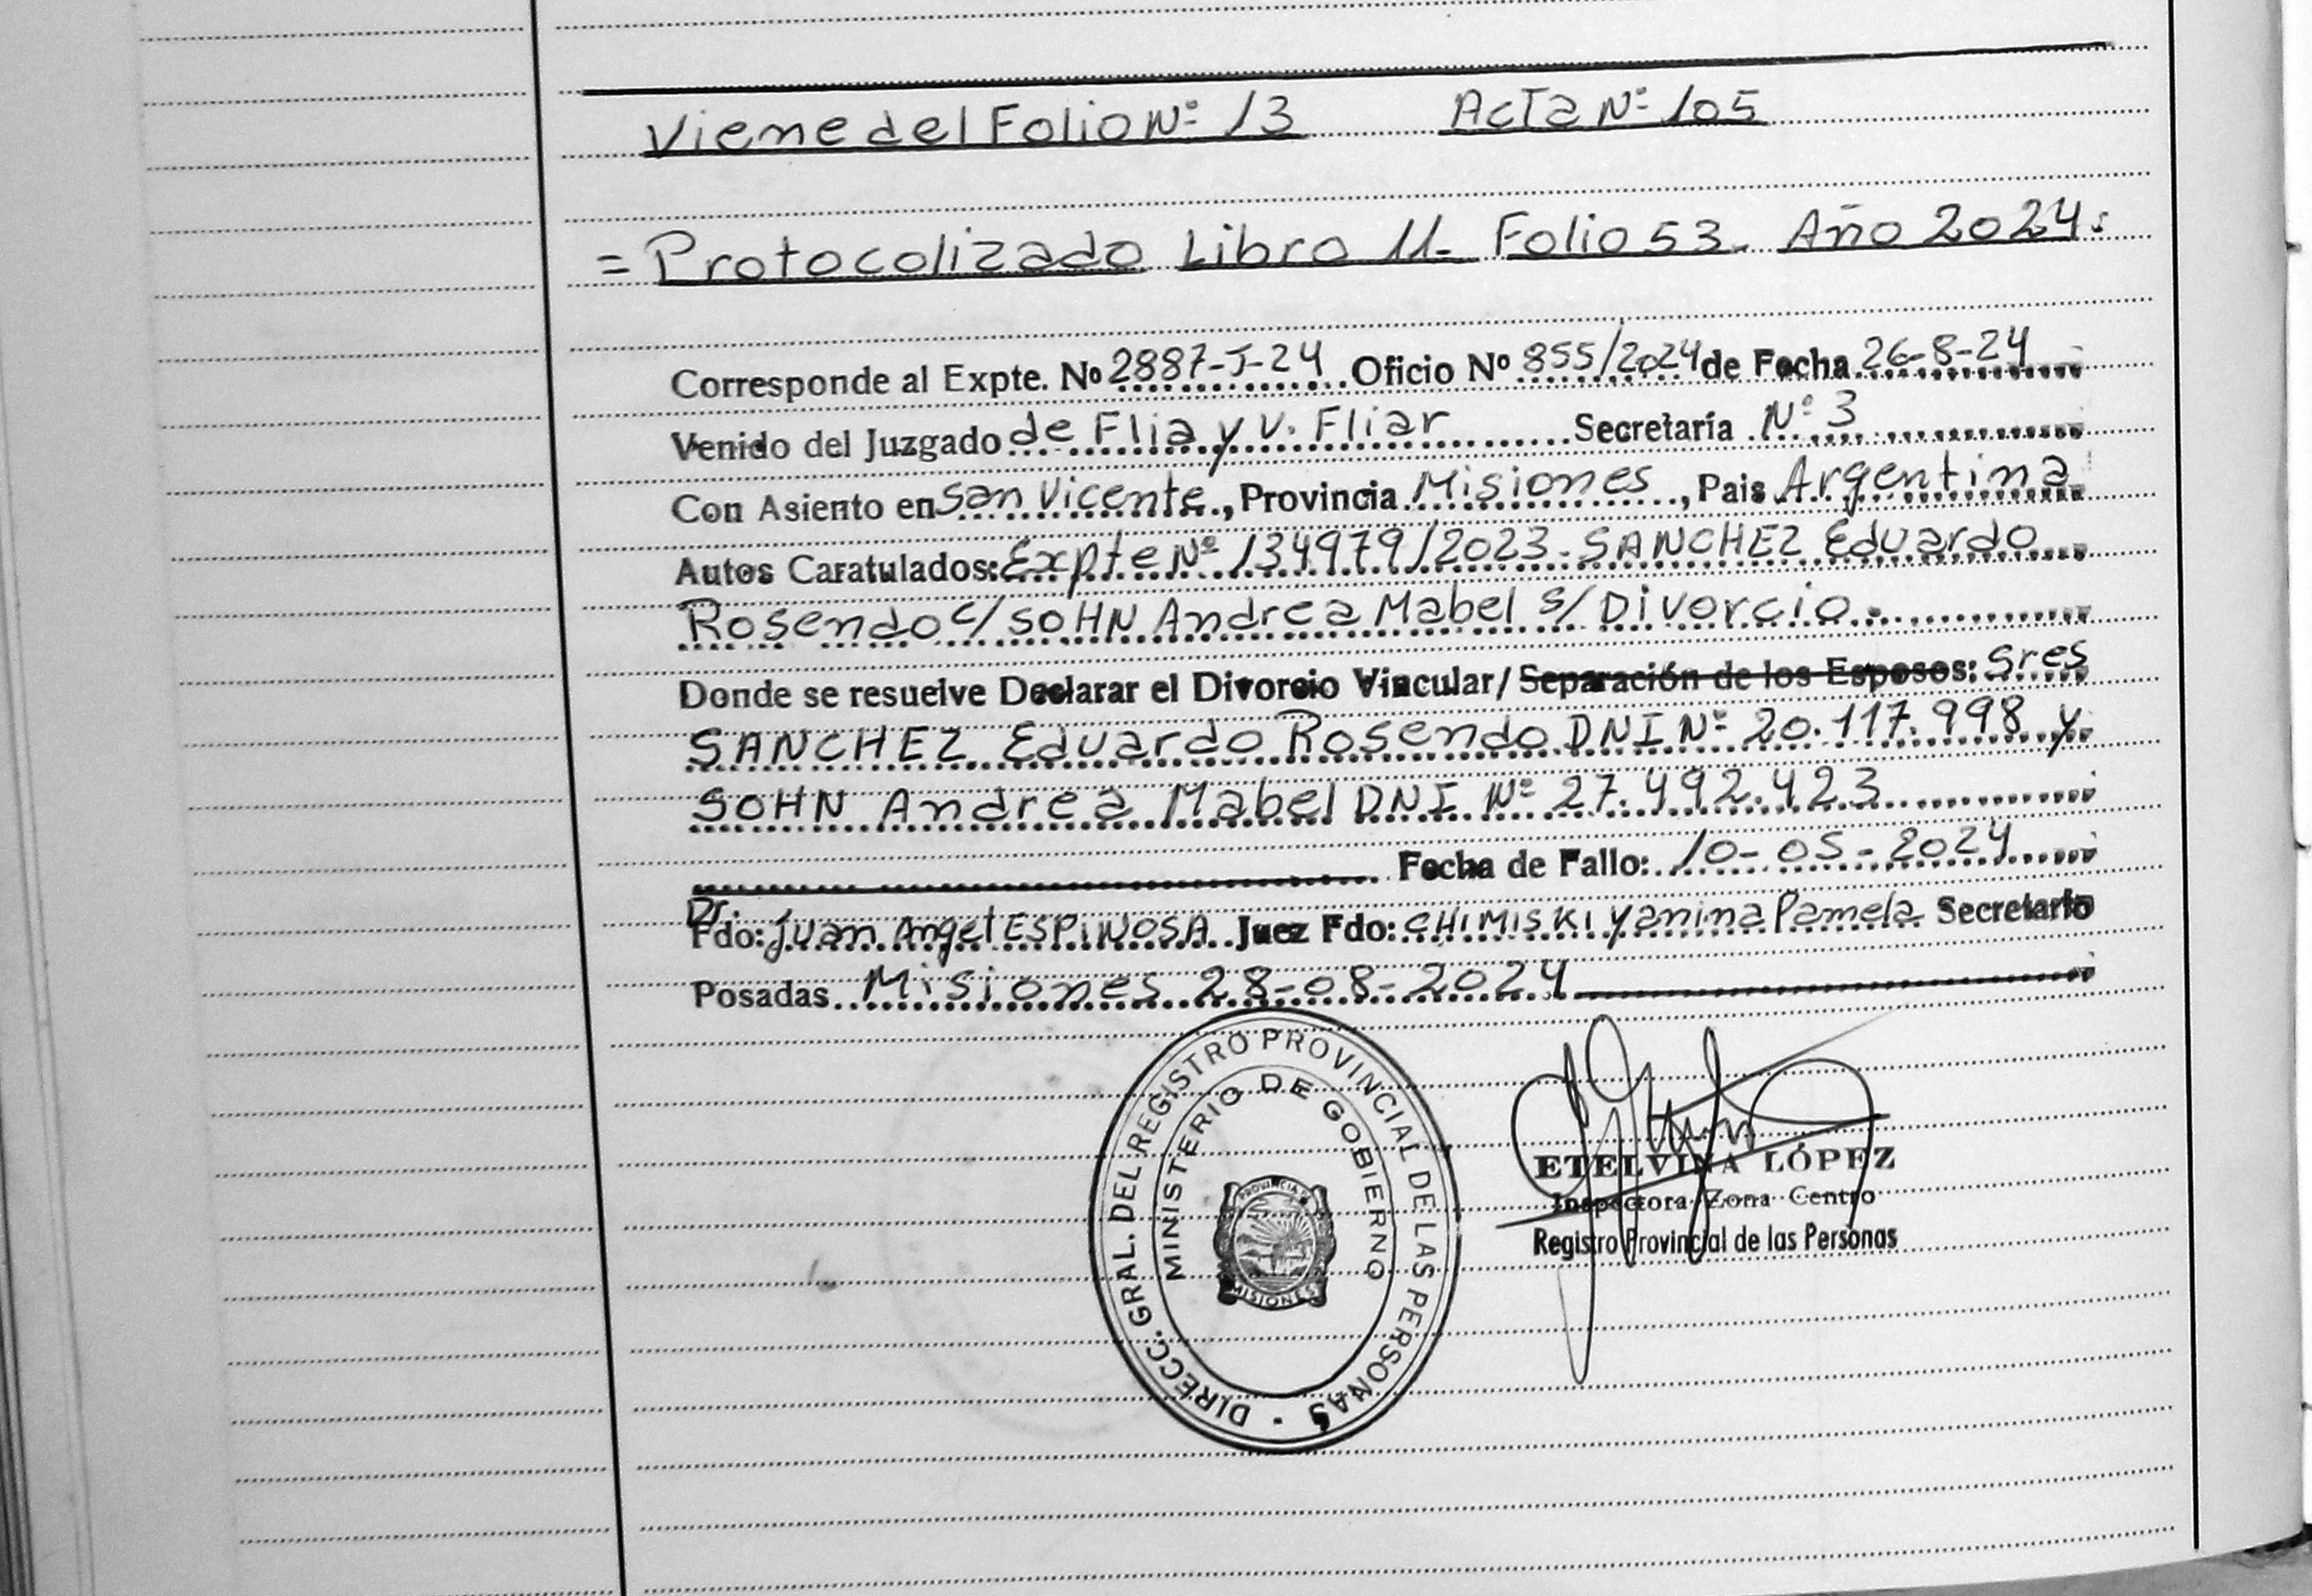 Viene del Folio Nº 13 Acta Nº 105
= Protocolizado Libro 11- Folio 53- Año 2024:
Corresponde al Expte. Nº 2887-J-24 Oficio Nº 855/2024 de Fecha 26-8-24
Venido del Juzgado de Flia y V. Fliar Secretaría Nº 3
Con Asiento en San Vicente, Provincia Misiones, Pais Argentina
Autos Caratulados: Expte Nº 134979/2023. SANCHEZ Eduardo
Rosendo c/ SOHN Andrea Mabel s/ Divorcio.
Donde se resuelve Declarar el Divorcio Vincular/ Separación de los Esposos: Sres
SANCHEZ Eduardo Rosendo DNI Nº 20.117.998 y
SOHN Andrea Mabel DNI Nº 27.492.423
Fecha de Fallo: 10-05-2024
Dr.
Fdo: Juan Angel ESPINOSA Juez Fdo: CHIMISKI Yanina Pamela Secretario
Posadas Misiones 28-08-2024
DIRECC. GRAL. DEL REGISTRO PROVINCIAL DE LAS PERSONAS
MINISTERIO DE GOBIERNO
PROVINCIA
MISIONES
ETELVINA LÓPEZ
Inspectora Zona Centro
Registro Provincial de las Personas